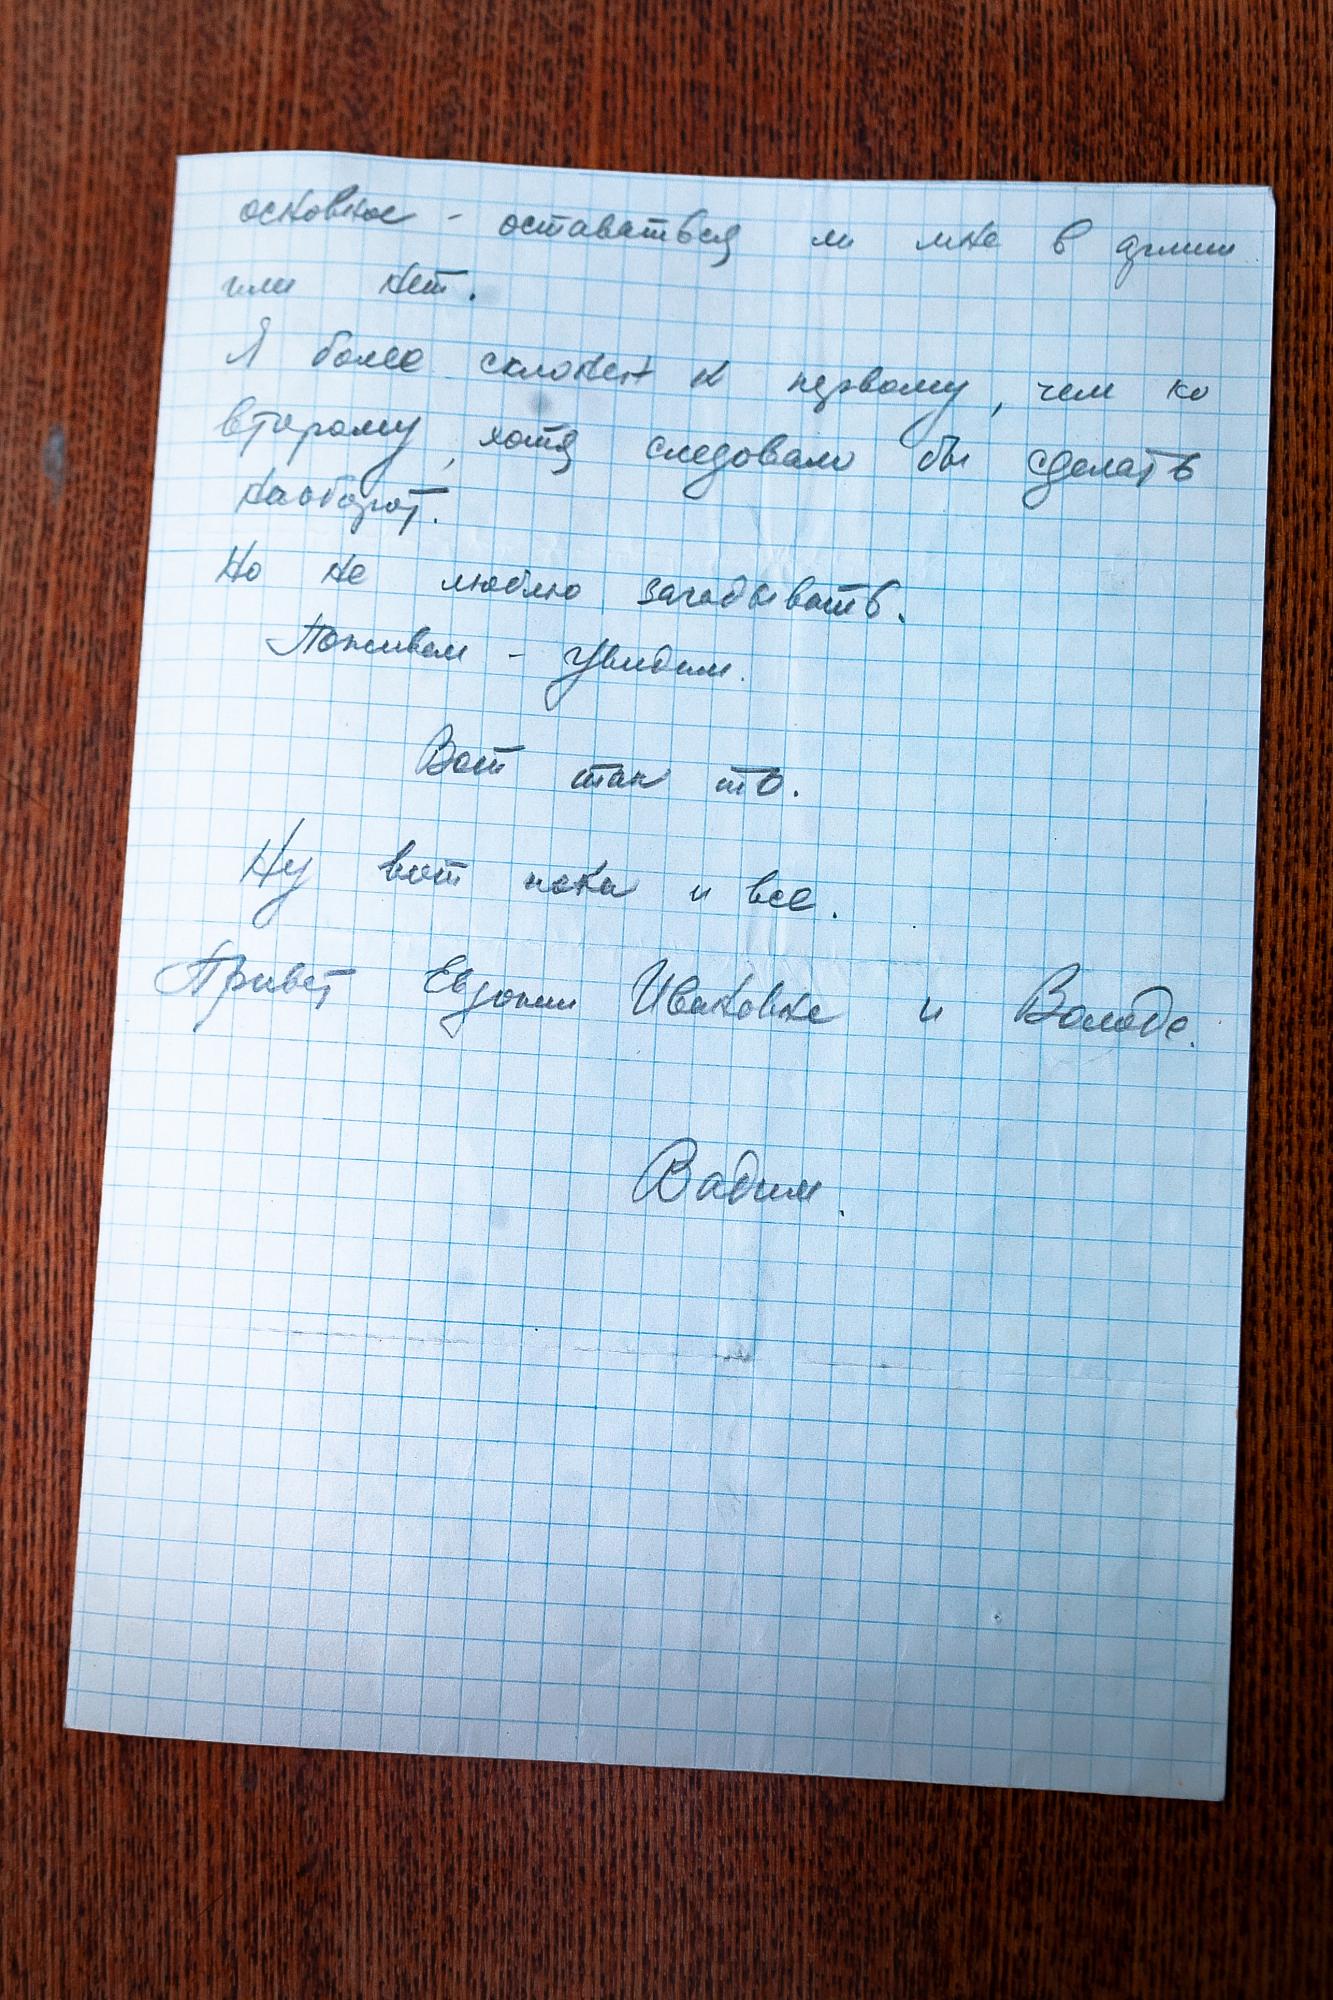 основное - оставаться ли мне в армии
или нет.
Я более склонен к первому, чем ко
второму, хотя следовало бы сделать
наоборот.
Но не люблю загадывать.
Поживем - увидим.
Вот так то.
Ну вот пока и все.
Привет Евдокии Ивановне и Володе.
Вадим.